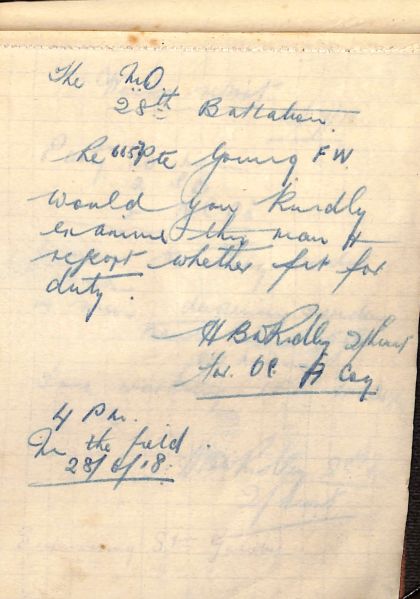 The MO
28th Battalion.
Re Pte Young FW.
Would you kindly
examine this man &
report whether fit for
duty.
2/Lieut
for. OC. A Coy.
4 Pm.
In the field.
28/6/18.